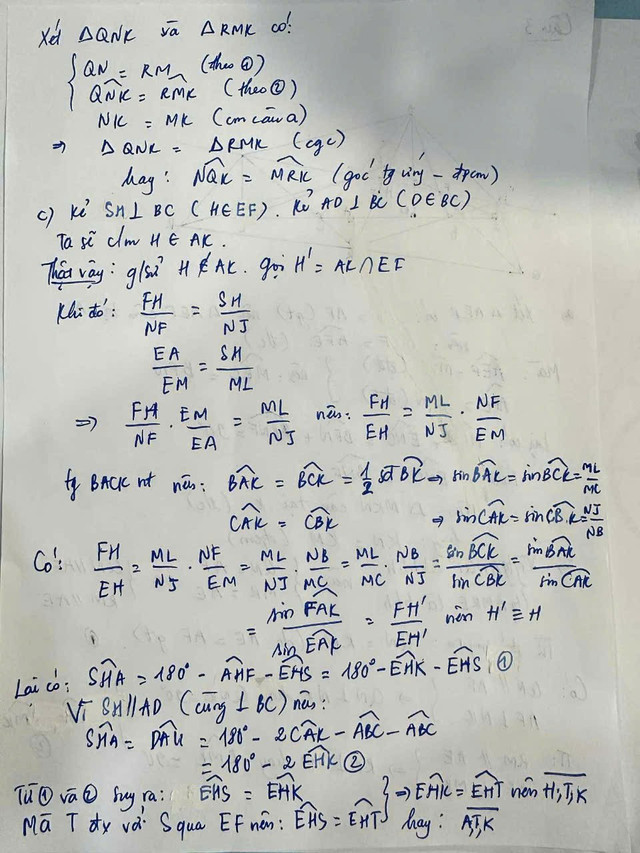 Xét ΔQNK và ΔRMK có:
{ QN = RM (theo ①)
{ \widehat{QNK} = \widehat{RMK} (theo ②)
NK = MK (cm câu a)
⇒ ΔQNK = ΔRMK (cgc)
hay: \widehat{NQK} = \widehat{MRK} (góc tg ứng - đpcm)
c) Kẻ SH ⊥ BC (H∈EF). Kẻ AD ⊥ BC (D∈BC)
Ta sẽ c/m H ∈ AK.
Thật vậy: g/sử H ∉ AK. gọi H' = AK ∩ EF
Khi đó: FH/NF = SH/NJ
EA/EM = SH/ML
⇒ FH/NF . EM/EA = ML/NJ nên: FH/EH = ML/NJ . NF/EM
tg BACK nt nên: \widehat{BAK} = \widehat{BCK} = 1/2 sđ \widehat{BK} ⇒ sin \widehat{BAK} = sin \widehat{BCK} = ML/MC
\widehat{CAK} = \widehat{CBK} ⇒ sin \widehat{CAK} = sin \widehat{CBK} = NJ/NB
Có: FH/EH = ML/NJ . NF/EM = ML/NJ . NB/MC = ML/MC . NB/NJ = sin \widehat{BCK}/sin \widehat{CBK} = sin \widehat{BAK}/sin \widehat{CAK}
= sin \widehat{FAK}/sin \widehat{EAK} = FH'/EH' nên H' ≡ H
Lại có: \widehat{SHA} = 180° - \widehat{AHF} - \widehat{EHS} = 180° - \widehat{EHK} - \widehat{EHS} ①
Vì SH // AD (cùng ⊥ BC) nên:
\widehat{SHA} = \widehat{DAK} = 180° - 2\widehat{CAK} - \widehat{ABC} - \widehat{ABC}
= 180° - 2\widehat{EHK} ②
Từ ① và ② suy ra: \widehat{EHS} = \widehat{EHK} } ⇒ \widehat{EHK} = \widehat{EHT} nên \overline{H,T,K}
Mà T đx với S qua EF nên: \widehat{EHS} = \widehat{EHT} } hay: \overline{A,T,K}